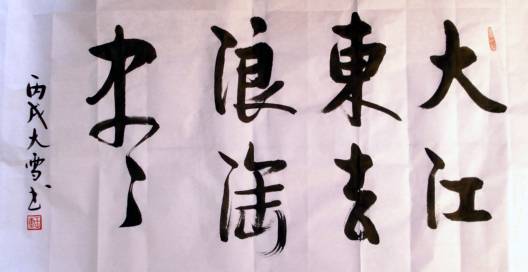 大江
東去
浪淘
盡
丙戌大雪书